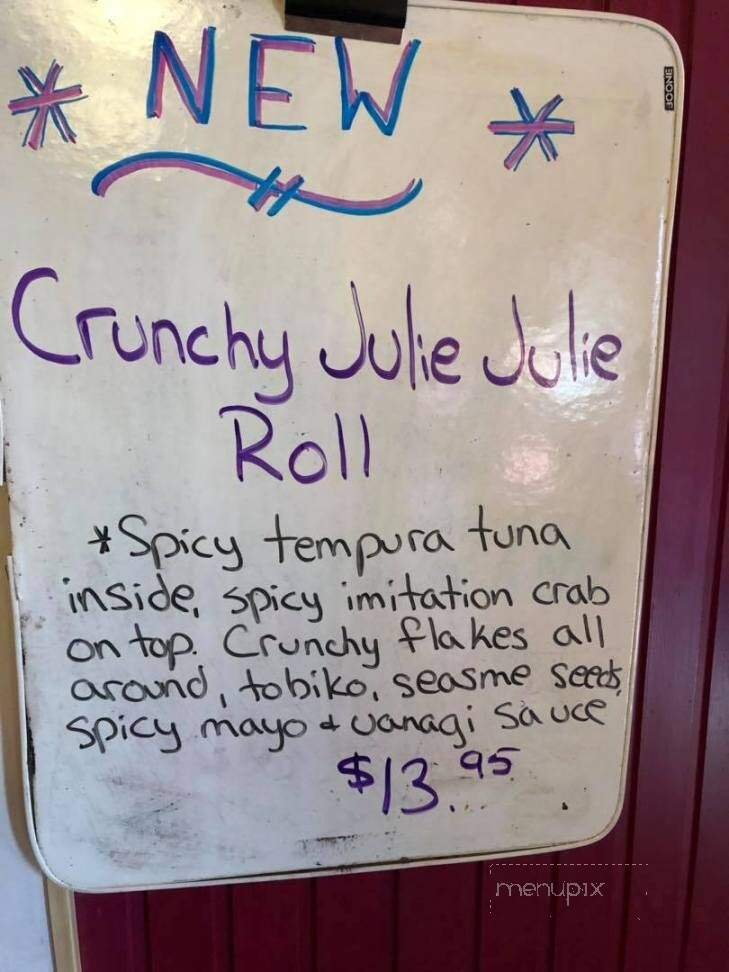 * NEW *
BOONE
Crunchy Julie Julie
Roll
*Spicy tempura tuna
inside, spicy imitation crab
on top. Crunchy flakes all
around, tobiko, seasme seeds,
spicy mayo + uanagi sauce
$13.95
menupix